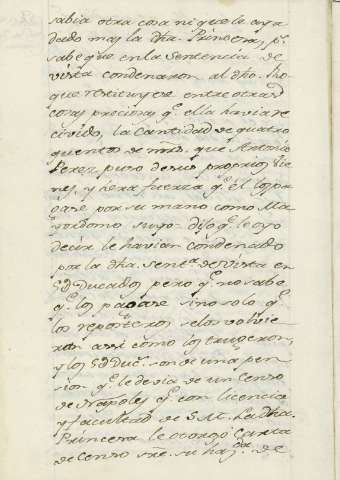 sabia otra cosa ni que le aya
dado mas la dha. Princesa, pº
sabe que en la Sentencia de
vista condenaron al dho. 
que restituyese entre otras
cosas preciosas qᵉ ella havia re
civido, la Cantidad de quatro
quentos de mrs. que Antonio
Perez puso de sus proprios vie
nes, y hera fuerza qᵉ él los pa
gase por su mano como Ma
yordomo suyo = Dijo qᵉ le oyo
decir le havian condenado
por la dha. sentª. de vista en
Ducados pero qᵉ no sabe
qᵉ los pagase sino solo qᵉ
los reposteros se los volvie
ron assi como los trugeron,
y los Ducˢ. son de una pen
sion qᵉ le devia de un Censo
de Napoles qᵉ con licencia
y facultad de S.M. la dha.
Princesa le otorgó Carta
de Censo sre. su haz.ᵈᵃ de